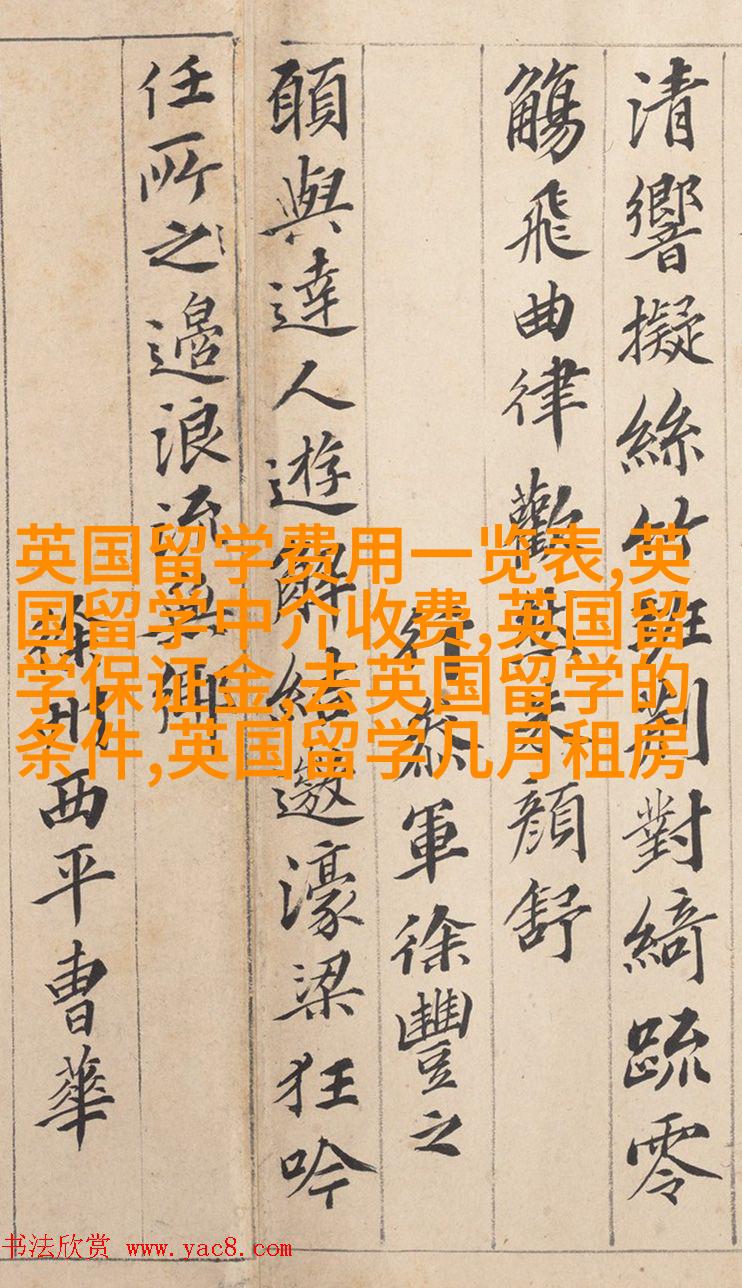 清響擬絲竹班荆對綺䟽零
觴飛曲律歡然朱顏舒
行叅軍徐豐之
願與達人遊解結遨濠梁狂吟
任所之邉浪流無鄉
徐州西平曹華
英国留学费用一览表,英
国留学中介收费,英国留
学保证金,去英国留学的
条件,英国留学几月租房
书法欣赏 www.yac8.com